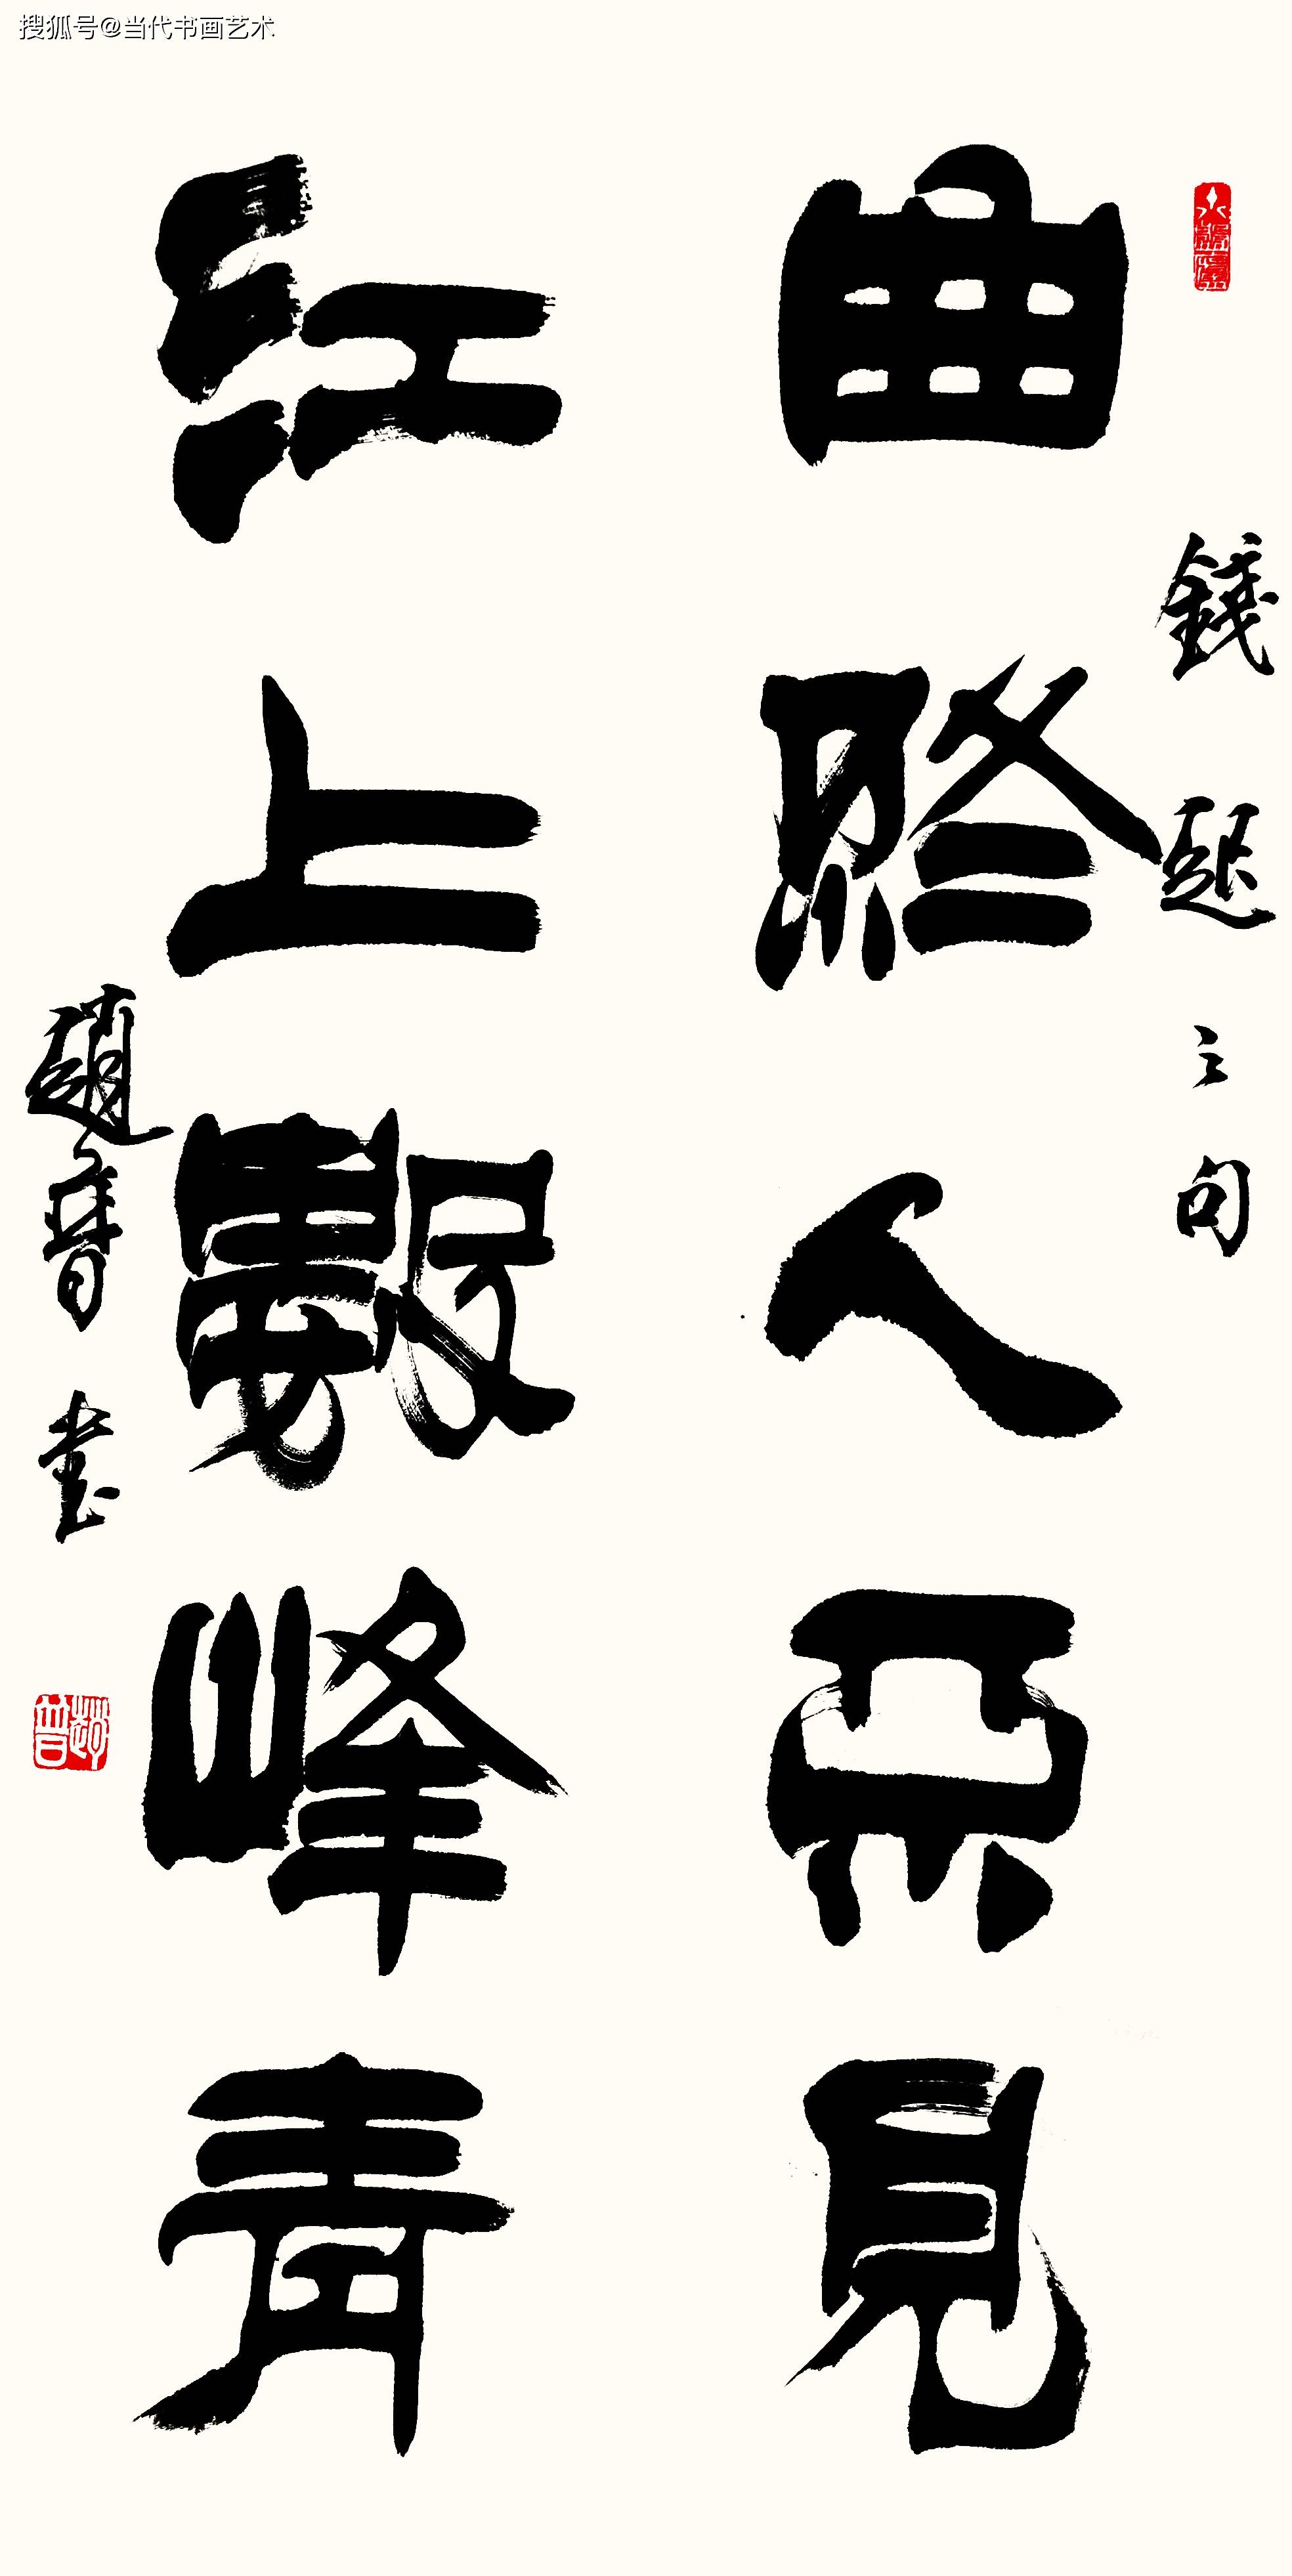 搜狐号@当代书画艺术
錢起之句
曲終人不見
江上數峰青
趙普書
趙普